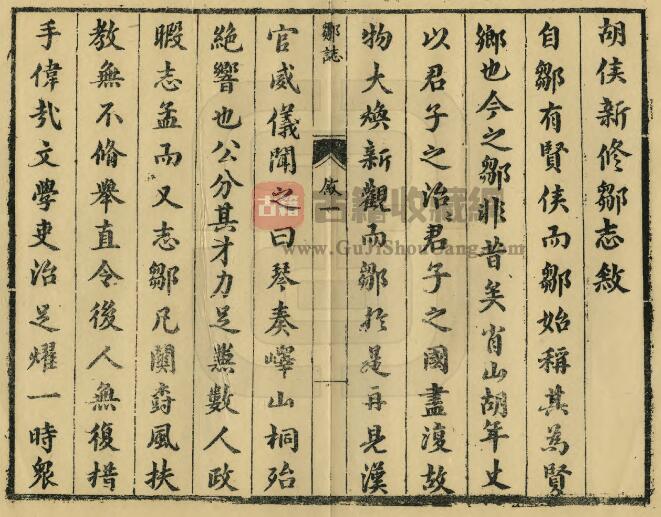 胡侯新修鄒志敘
自鄒有賢侯而鄒始稱其為賢
鄉也今之鄒非昔矣肖山胡年丈
以君子之治君子之國盡復故
物大煥新觀而鄒於是再見漢
鄒誌 敘一 一
官威儀聞之曰琴奏嶧山桐殆
絕響也公分其才力足兼數人政
暇志孟而又志鄒凡關尌風扶
教無不脩舉直令後人無復措
手偉哉文學吏治足燿一時衆
古籍 古籍收藏網
www.GuJiShouCang.com